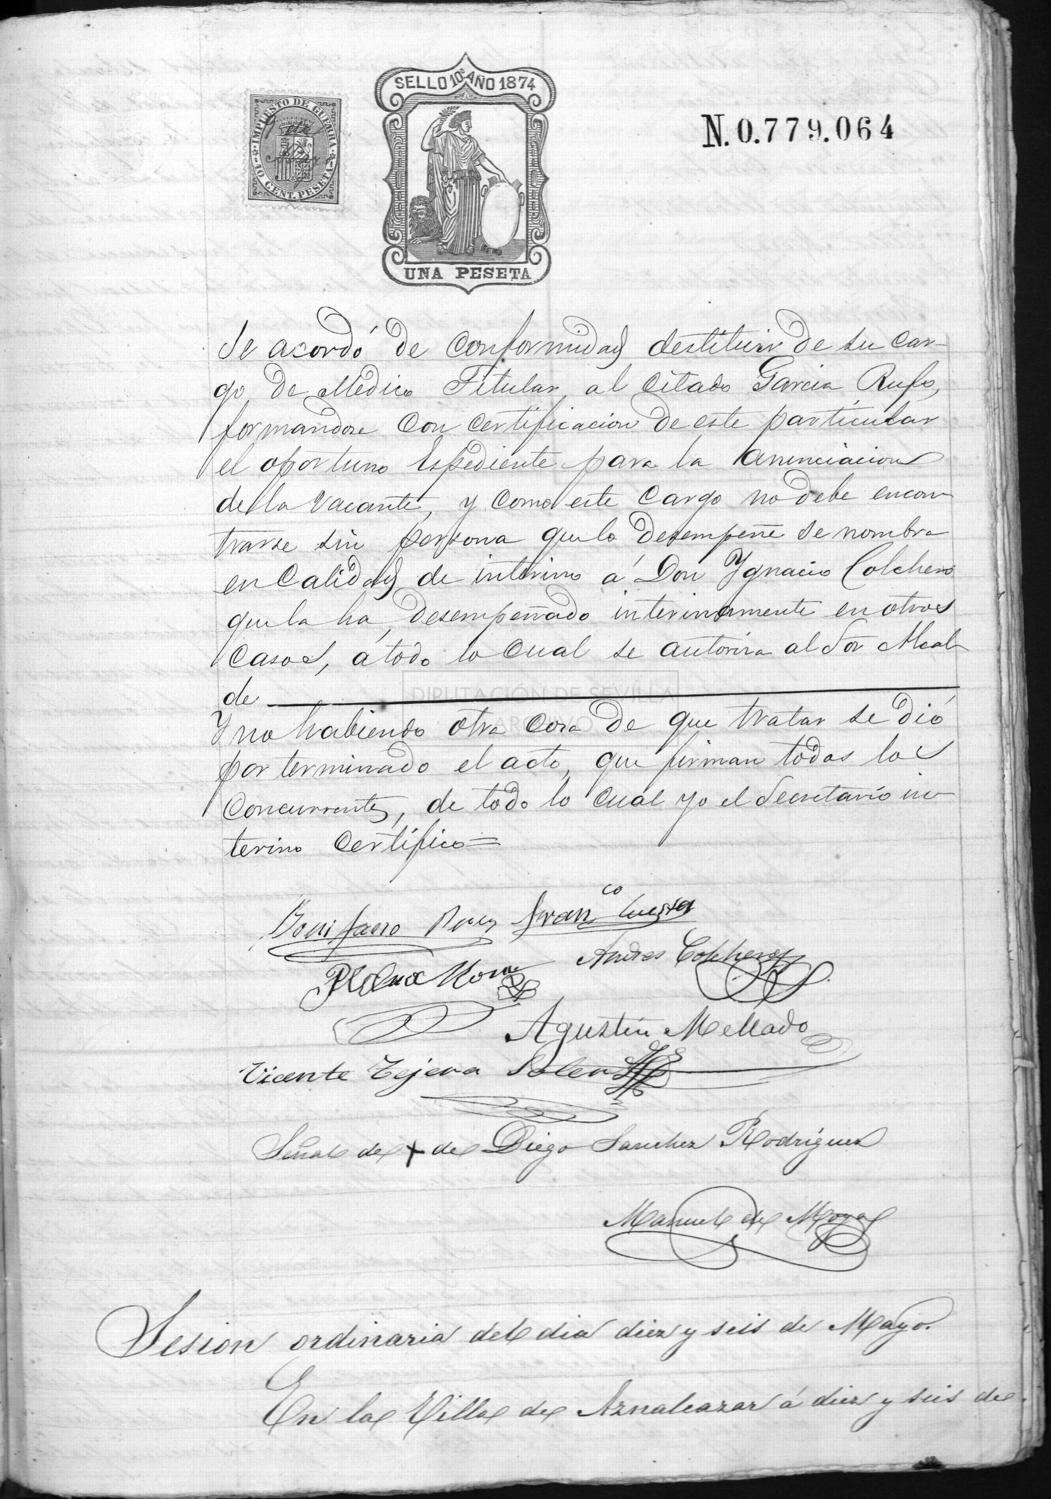 SELLO 10º AÑO 1874
IMPUESTO DE GUERRA
10 CENT. PESETA
N.0.779.064
UNA PESETA
Se acordó de conformidad destituir de su car-
go de Medico Titular al citado Garcia Rufo,
formandose con certificacion de este particular
el oportuno Espediente para la anunciacion
de la vacante, y como este cargo no debe encon
trarse sin persona que lo desempeñe se nombra
en calidad de interino á Don Ygnacio Colchero
que la ha desempeñado interinamente en otros
casos, a todo lo cual se autoriza al Sor Alcal-
de
DIPUTACIÓN DE SEVILLA
ARCHIVO
Y no habiendo otra cosa de que tratar se dió
por terminado el acto, que firman todos los
concurrentes, de todo lo cual yo el Secretario in-
terino certifico=
Bonifacio Franco Cuesta
Andres Colchero
Agustin Mellado
Vicente Tejera Soler
Señal de + de Diego Sanchez Rodriguez
Manuel de Moya
Sesion ordinaria del dia diez y seis de Mayo.
En la Villa de Aznalcazar á diez y seis de